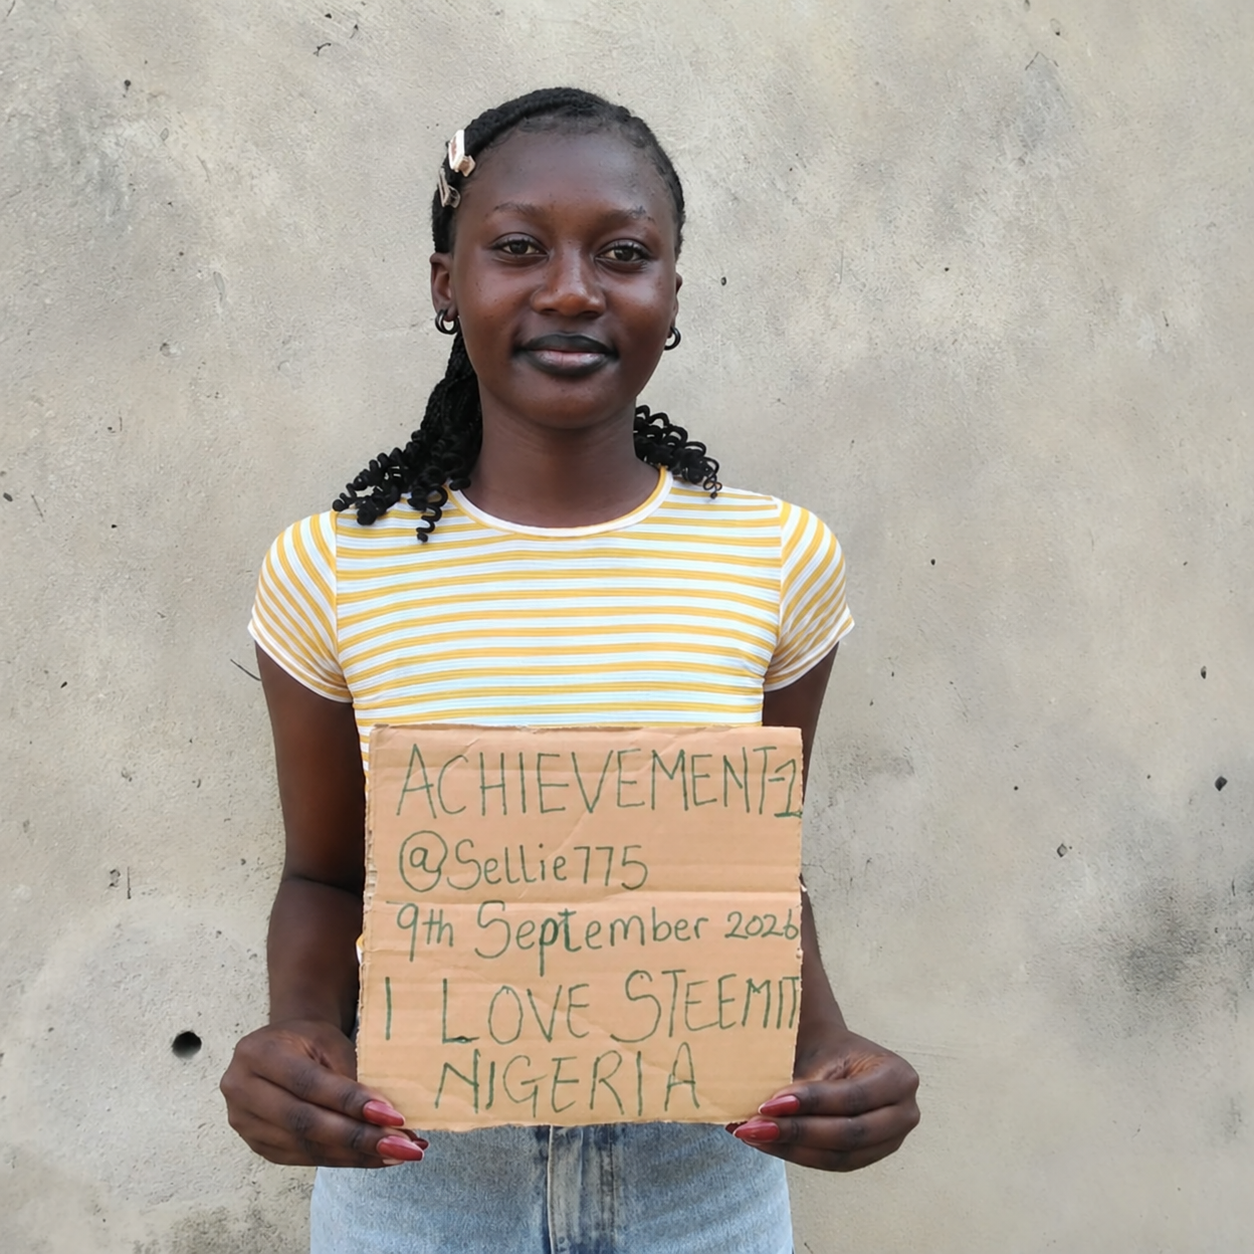 ACHIEVEMENT-1
@Sellie775
9th September 2026
I LOVE STEEMIT
NIGERIA